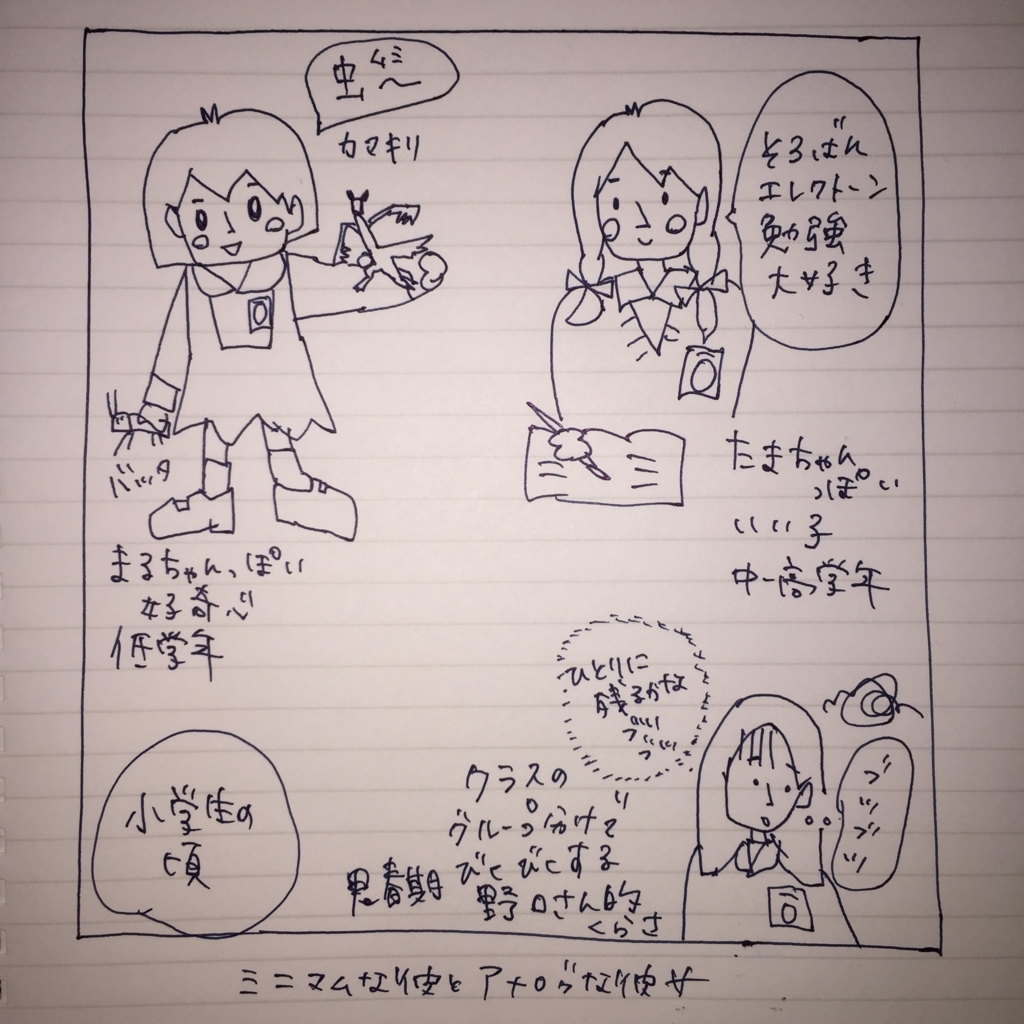 虫〜
ムシ
カマキリ
そろばん
エレクトーン
勉強
大好き
バッタ
まるちゃんっぽい
好奇心
低学年
たまちゃん
っぽい
いい子
中-高学年
小学生の
頃
ひとりに
残るかな
ブツブツ
クラスの
グループ分けで
びくびくする
野口さん的
くらさ
思春期
ブツブツ
ミニマムな彼とアナログな彼女